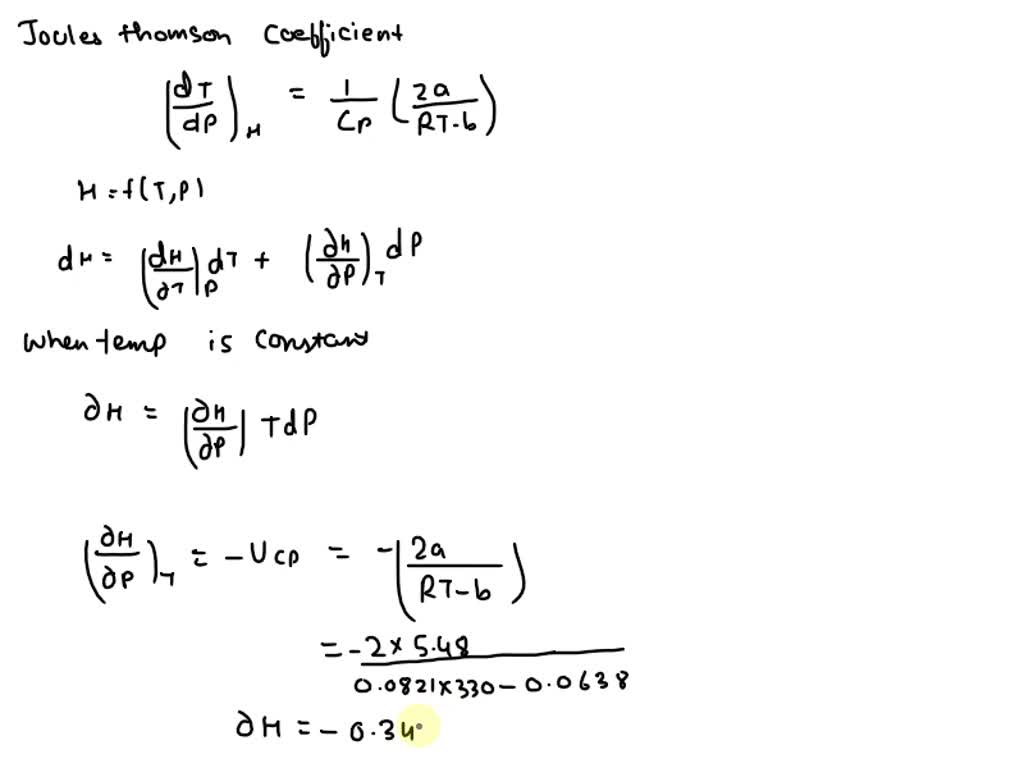 Joules thomson coefficient
(dT/dP)H = 1/Cp (2a/RT-b)
H = f(T,P)
dH = (dH/∂T)P dT + (∂H/∂P)T dP
When temp is constant
∂H = (∂H/∂P) T dP
(∂H/∂P)T = -UCP = -(2a/RT-b)
= -2 × 5.48 / 0.0821×330 - 0.0638
∂H = - 0.34